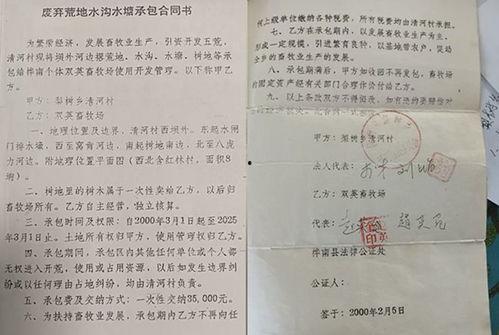 废弃荒地水沟水塘承包合同书
为繁荣经济，发展畜牧业生产，引资开发五荒，
清河村现将坝外河边摆荒地、水沟、水塘、树地等承
包给柞南个体双英畜牧场使用开发管理。以下称甲乙
方。
甲方：梨树乡清河村
乙方：双英畜牧场
一、地理位置及边界，清河村西坝外。东起水闸
门排水壕，西至窝肯河边，南起树地南边，北至八虎
力河边。附地理位置平面图（西北含红林村，面积8
垧）。
二、树地里的树木属于一次性卖给乙方，以后归
畜牧场所有。乙方自主经营，独立核算。
三、承包时间及权限：自2000年3月1日起至2025
年3月1日止。土地所有权归甲方，使用管理权归乙方。
四、承包期间，承包区内其他任何单位或个人都
无权进入开荒，使用或占用资源，以后如发生边界纠
纷或以任何理由占地纠纷，均由清河村负责。
五、承包费及交纳方式：一次性交纳35,000元。
六、为扶持畜牧业发展，承包期内乙方不再向任
何上级单位缴的各种税费，所有税费均由清河村承担。
七、乙方在承包期内，以发展畜牧业生产为主，
形成一定规模，引进繁育良种，以基地带农户，促动
全乡的畜牧业生产的发展。
八、承包期满后，甲方如收回不再发包，畜牧场
的固定资产经有关部门合理作价付给乙方。
九、以上条款双方不得违改，
甲方：梨树乡清河村
法人代表：
乙方：双英畜牧场
代表：
桦南县法律公证处
公证人：
签于：2000年2月5日